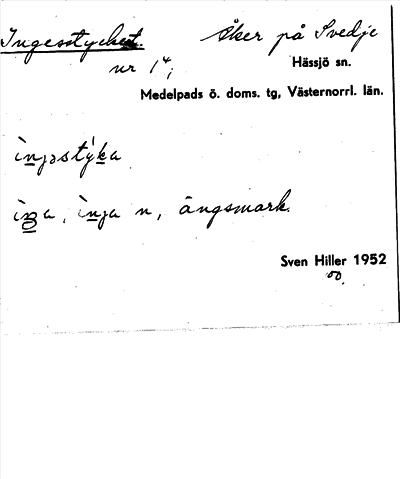 Ingesstycket. Åker på Svedje
nr 1⁴;
Hässjö sn.
Medelpads ö. doms. tg, Västernorrl. län.
ìnjəstýka
ìŋa, ìnja n, ängsmark.
Sven Hiller 1952